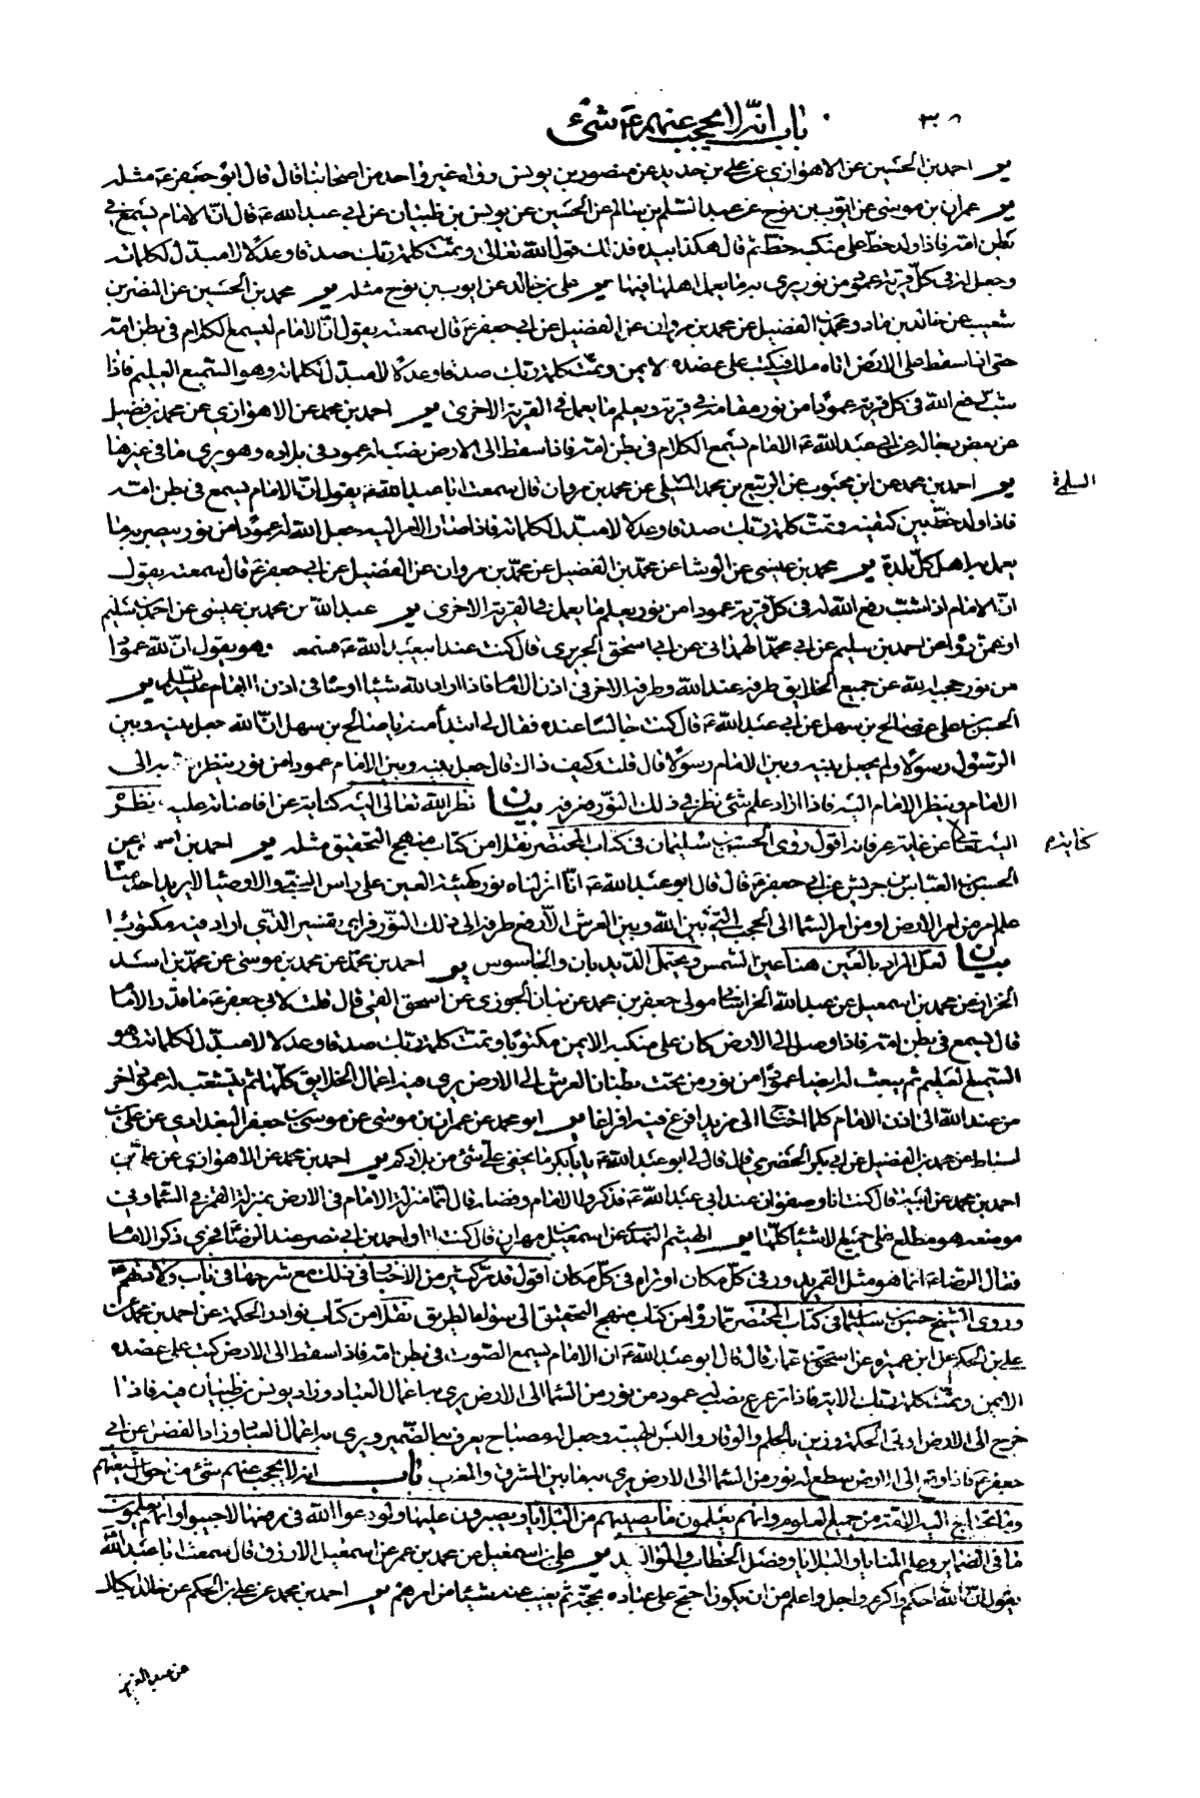 باب انه لا يحجب عنهم ع شئ
٣٠٨
ير احمد بن الحسين عن الاهوازي عن علي بن حديد عن منصور بن يونس رواه غير واحد من اصحابنا قال قال ابو جعفر ع مثله
ير عمران بن موسى عن ايوب بن نوح عن عبد السلم بن سالم عن الحسين عن يونس بن ظبيان عن ابي عبد الله ع قال ان الامام يسمع في
بطن امه فاذا ولد خط على منكبه خط ثم قال هكذا بيده فذلك قول الله تعالى وتمت كلمة ربك صدقا وعدلا لا مبدل لكلماته
وجعل له في كل قرية عمود من نور يرى به ما يعمل اهلها فيها ير علي بن خالد عن ايوب بن نوح مثله ير محمد بن الحسين عن النضر بن
شعيب عن خالد بن ماد ومحمد بن الفضيل عن محمد بن مروان عن الفضيل عن ابي جعفر ع قال سمعته يقول ان الامام ليسمع الكلام في بطن امه
حتى اذا سقط على الارض اتاه ملك فيكتب على عضده الايمن وتمت كلمة ربك صدقا وعدلا لا مبدل لكلماته وهو السميع العليم فاذا
شب رفع الله في كل قرية عمودا من نور مقامه في قرية ويعلم ما يعمل في القرية الاخرى ير احمد بن محمد عن الاهوازي عن محمد بن فضيل
عن بعض رجاله عن ابي عبد الله ع الامام يسمع الكلام في بطن امه فاذا سقط الى الارض نصب له عمود في بلاده وهو يرى ما في غيرها
ير احمد بن محمد عن ابن محبوب عن الربيع بن محمد المسلي عن محمد بن مروان قال سمعت ابا عبد الله ع يقول ان الامام يسمع في بطن امه
فاذا ولد خط بين كتفيه وتمت كلمة ربك صدقا وعدلا لا مبدل لكلماته فاذا صار الامر اليه جعل الله له عمودا من نور يبصر به ما
يعمل به اهل كل بلدة ير محمد بن عيسى عن الوشا عن محمد بن الفضيل عن محمد بن مروان عن الفضيل عن ابي جعفر ع قال سمعته يقول
ان الامام اذا شب رفع الله له في كل قرية عمودا من نور يعلم ما يعمل في القرية الاخرى ير عبد الله بن محمد بن عيسى عن احمد بن سليم
او عمن رواه عن احمد بن سليم عن ابي محمد الهمداني عن ابي اسحق الجريري قال كنت عند ابي عبد الله ع فسمعته وهو يقول ان لله عمودا
من نور حجبه الله عن جميع الخلايق طرفه عند الله وطرفه الاخر في اذن الامام فاذا اراد الله شيئا اوحاه في اذن الامام عليه السلم ير
الحسن بن علي عن صالح بن سهل عن ابي عبد الله ع قال كنت جالسا عنده فقال لي ابتداء منه يا صالح بن سهل ان الله جعل بينه وبين
الرسول رسولا ولم يجعل بينه وبين الامام رسولا قال قلت وكيف ذاك قال جعل بينه وبين الامام عمودا من نور ينظر به الى
الامام وينظر الامام اليه فاذا اراد علم شئ نظر في ذلك النور فعرفه بيان نظر الله تعالى اليه كناية عن افاضاته عليه ونظره
اليه تعالى عن غاية عرفانه اقول روى الحسن بن سليمان في كتاب المحتضر نقلا من كتاب منهج التحقيق مثله ير احمد بن اسحق عن
الحسن بن العباس بن جريش عن ابي جعفر ع قال قال ابو عبد الله ع انا انزلناه نور كهيئة العين على راس النبي والاوصياء لا يريد احد منا
علم امر من امر الارض او من امر السماء الى الحجب التي بين الله وبين العرش الا رفع طرفه الى ذلك النور فراى تفسير الذي اراد فيه مكتوبا
بيان لعل المراد بالعين هنا عين الشمس ويحتمل الديدبان والجاسوس ير احمد بن محمد عن محمد بن موسى عن محمد بن اسد
الخزاز عن محمد بن اسمعيل عن عبد الله الخراساني مولى جعفر بن محمد عن بنان الجوزي عن اسحق القمي قال قلت لابي جعفر ع ما قدر الامام
قال يسمع في بطن امه فاذا وصل الى الارض كان على منكبه الايمن مكتوبا وتمت كلمة ربك صدقا وعدلا لا مبدل لكلماته وهو
السميع العليم ثم يبعث له ايضا عمودا من نور من تحت بطنان العرش الى الارض يرى فيه اعمال الخلايق كلها ثم يتشعب له عمود اخر
من عند الله الى اذن الامام كلما احتاج الى مزيد افرغ فيه افراغا ير ابو محمد عن عمران بن موسى عن موسى بن جعفر البغدادي عن علي بن
اسباط عن محمد بن الفضيل عن ابي بكر الحضرمي قال قال لي ابو عبد الله ع يا ابا بكر ما يخفى علي شئ من بلادكم ير احمد بن محمد عن الاهوازي عن علي بن
احمد بن محمد عن ابيه قال كنت انا وصفوان عند ابي عبد الله ع فذكروا الامام وفضله قال انما منزلة الامام في الارض بمنزلة القمر في السماء وفي
موضعه هو مطلع على جميع الاشياء كلها ير الهيثم النهدي عن اسمعيل بن مهران قال كنت انا واحمد بن ابي نصر عند الرضا ع فجرى ذكر الامام
فقال الرضا ع انما هو مثل القمر يدور في كل مكان او تراه في كل مكان اقول قد مر كثير من الاخبار في ذلك مع شرحها في باب ولادتهم ع
وروى الشيخ حسن بن سليمان في كتاب المحتضر مما رواه من كتاب منهج التحقيق الى سواء الطريق نقلا من كتاب نوادر الحكمة عن احمد بن محمد عن
علي بن الحكم عن ابن عميرة عن اسحق بن عمار قال قال ابو عبد الله ع ان الامام يسمع الصوت في بطن امه فاذا سقط الى الارض كتب على عضده
الايمن وتمت كلمة ربك الاية فاذا ترعرع نصب له عمود من نور من السماء الى الارض يرى به اعمال العباد وزاد يونس بن ظبيان فيه فاذا
خرج الى الارض اوتي الحكمة وزين بالحلم والوقار والبس الهيبة وجعل له مصباح يعرف به الضمير ويرى به اعمال العباد وزاد الفضل عن ابي
جعفر ع فاذا وقع الى الارض سطع له نور من السماء الى الارض يرى به ما بين المشرق والمغرب باب انه لا يحجب عنهم شئ من احوال شيعتهم
وما تحتاج اليه الامة من جميع العلوم وانهم يعلمون ما يصيبهم من البلايا ويصبرون عليها ولو دعوا الله في دفعها لاجيبوا وانهم يعلمون
ما في الضماير وعلم المنايا والبلايا وفصل الخطاب والمواليد ير علي بن اسمعيل عن محمد بن عمر عن اسمعيل الازرق قال سمعت ابا عبد الله
يقول ان الله احكم واكرم واجل واعلم من ان يكون احتج على عباده بحجة ثم يغيب عنه شيئا من امرهم ير احمد بن محمد عن علي بن الحكم عن خالد الكيال